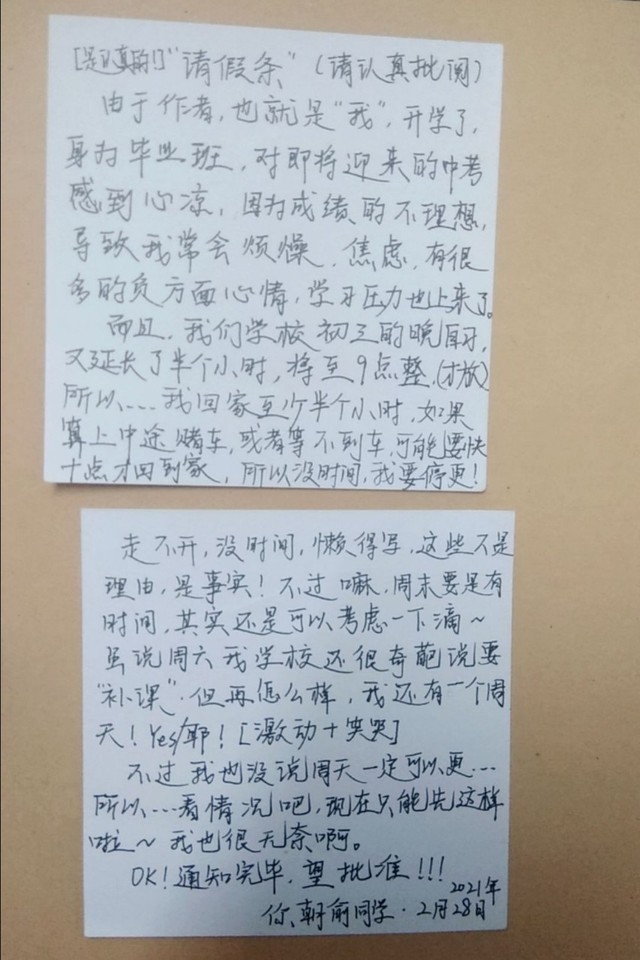 [是认真的!]“请假条”(请认真批阅)
由于作者,也就是“我”,开学了,
身为毕业班,对即将迎来的中考
感到心凉,因为成绩的不理想,
导致我常会烦燥、焦虑,有很
多的负方面心情,学习压力也上来了。
而且,我们学校初三的晚自习,
又延长了半个小时,将至9点整,(才放)
所以....我回家至少半个小时,如果
算上中途赌车,或者等不到车,可能要快
十点才回到家,所以没时间,我要停更!
走不开,没时间,懒得写,这些不是
理由,是事实!不过嘛,周末要是有
时间,其实还是可以考虑一下滴~
虽说周六我学校还很奇葩说要
“补课”,但再怎么样,我还有一个周
天!Yes/耶![激动+笑哭]
不过我也没说周天一定可以更...
所以....看情况吧,现在只能先这样
啦~我也很无奈啊。
OK!通知完毕,望批准!!!
2021年
你、朝俞同学·2月28日